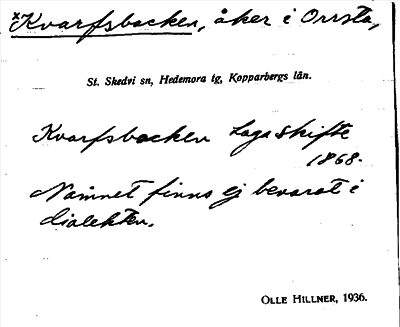 *Kvarfsbacken, åker i Orrsta,
St. Skedvi sn, Hedemora tg, Kopparbergs län.
Kvarfsbacken Laga skifte
1868.
Namnet finns ej bevarat i
dialekten.
OLLE HILLNER, 1936.